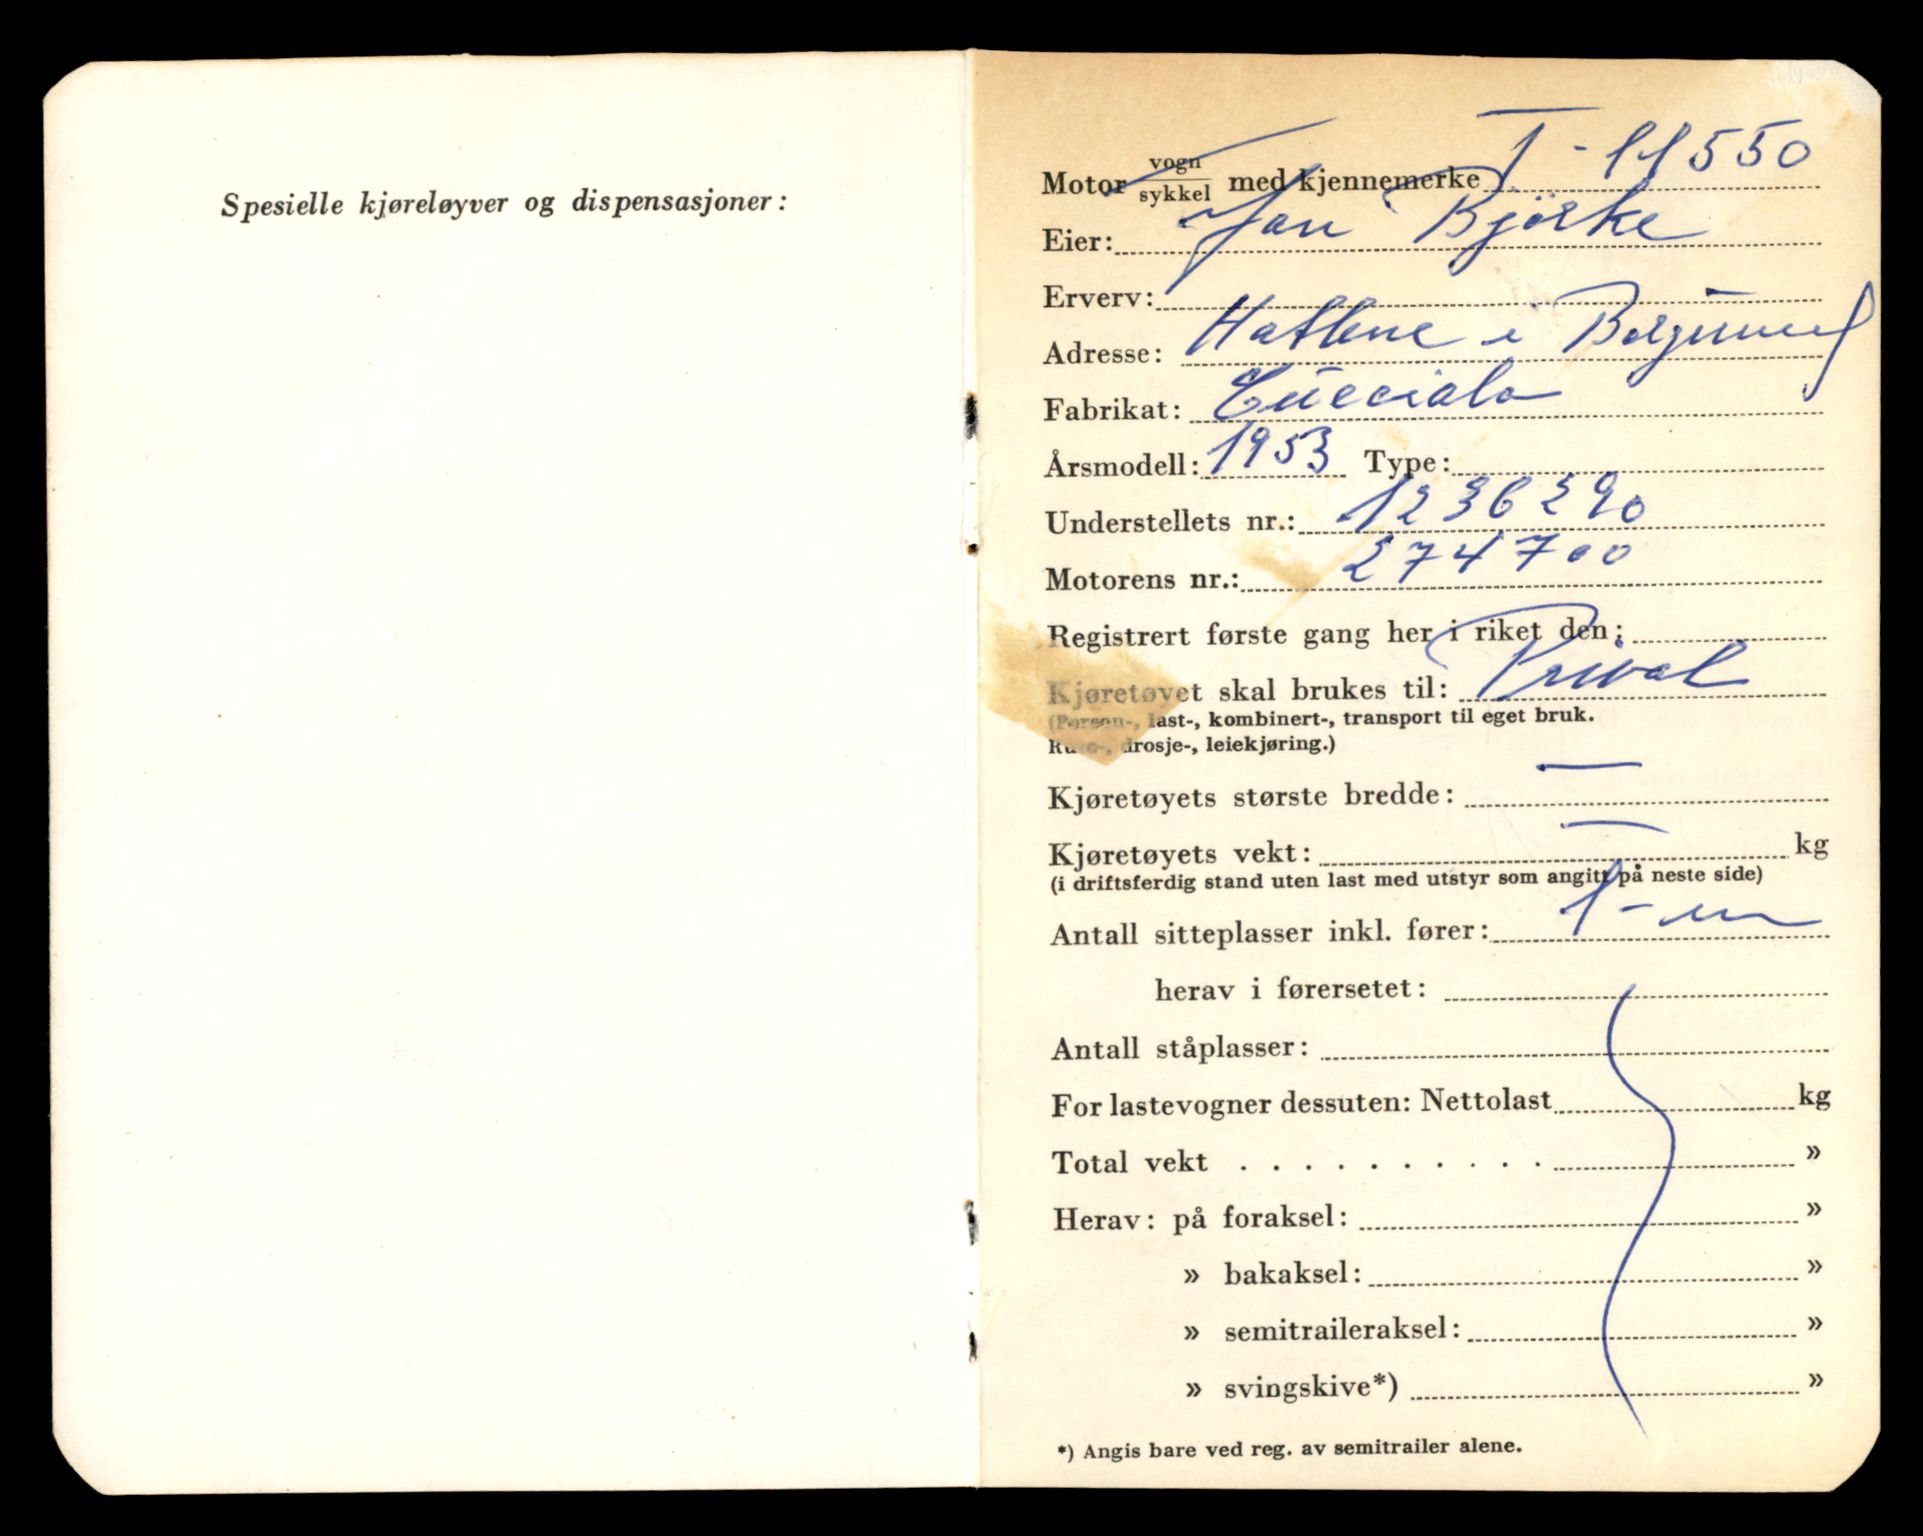 Spesielle kjøreløyver og dispensasjoner:
Motor vogn/sykkel med kjennemerke T-11550
Eier: Jan Bjørke
Erverv:
Adresse: Hatlene i Borgund
Fabrikat: Cucciolo
Årsmodell: 1953 Type:
Understellets nr.: 1236290
Motorens nr.: 274700
Registrert første gang her i riket den:
Kjøretøyet skal brukes til: Privat
(Person-, last-, kombinert-, transport til eget bruk.
Rute-, drosje-, leiekjøring.)
Kjøretøyets største bredde: —
Kjøretøyets vekt: — kg
(i driftsferdig stand uten last med utstyr som angitt på neste side)
Antall sitteplasser inkl. fører: 1-en
herav i førersetet:
Antall ståplasser:
For lastevogner dessuten: Nettolast kg
Total vekt . . . . . . . . . . »
Herav: på foraksel: »
» bakaksel: »
» semitraileraksel: »
» svingskive*) »
*) Angis bare ved reg. av semitrailer alene.